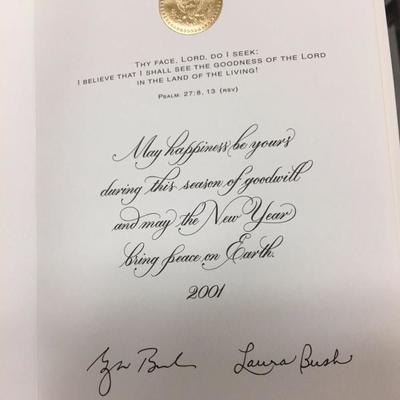 Thy face, Lord, do I seek:
I believe that I shall see the goodness of the Lord
in the land of the living!
Psalm: 27:8, 13 (RSV)
May happiness be yours
during this season of goodwill
and may the New Year
bring peace on Earth.
2001
Bush
Laura Bush